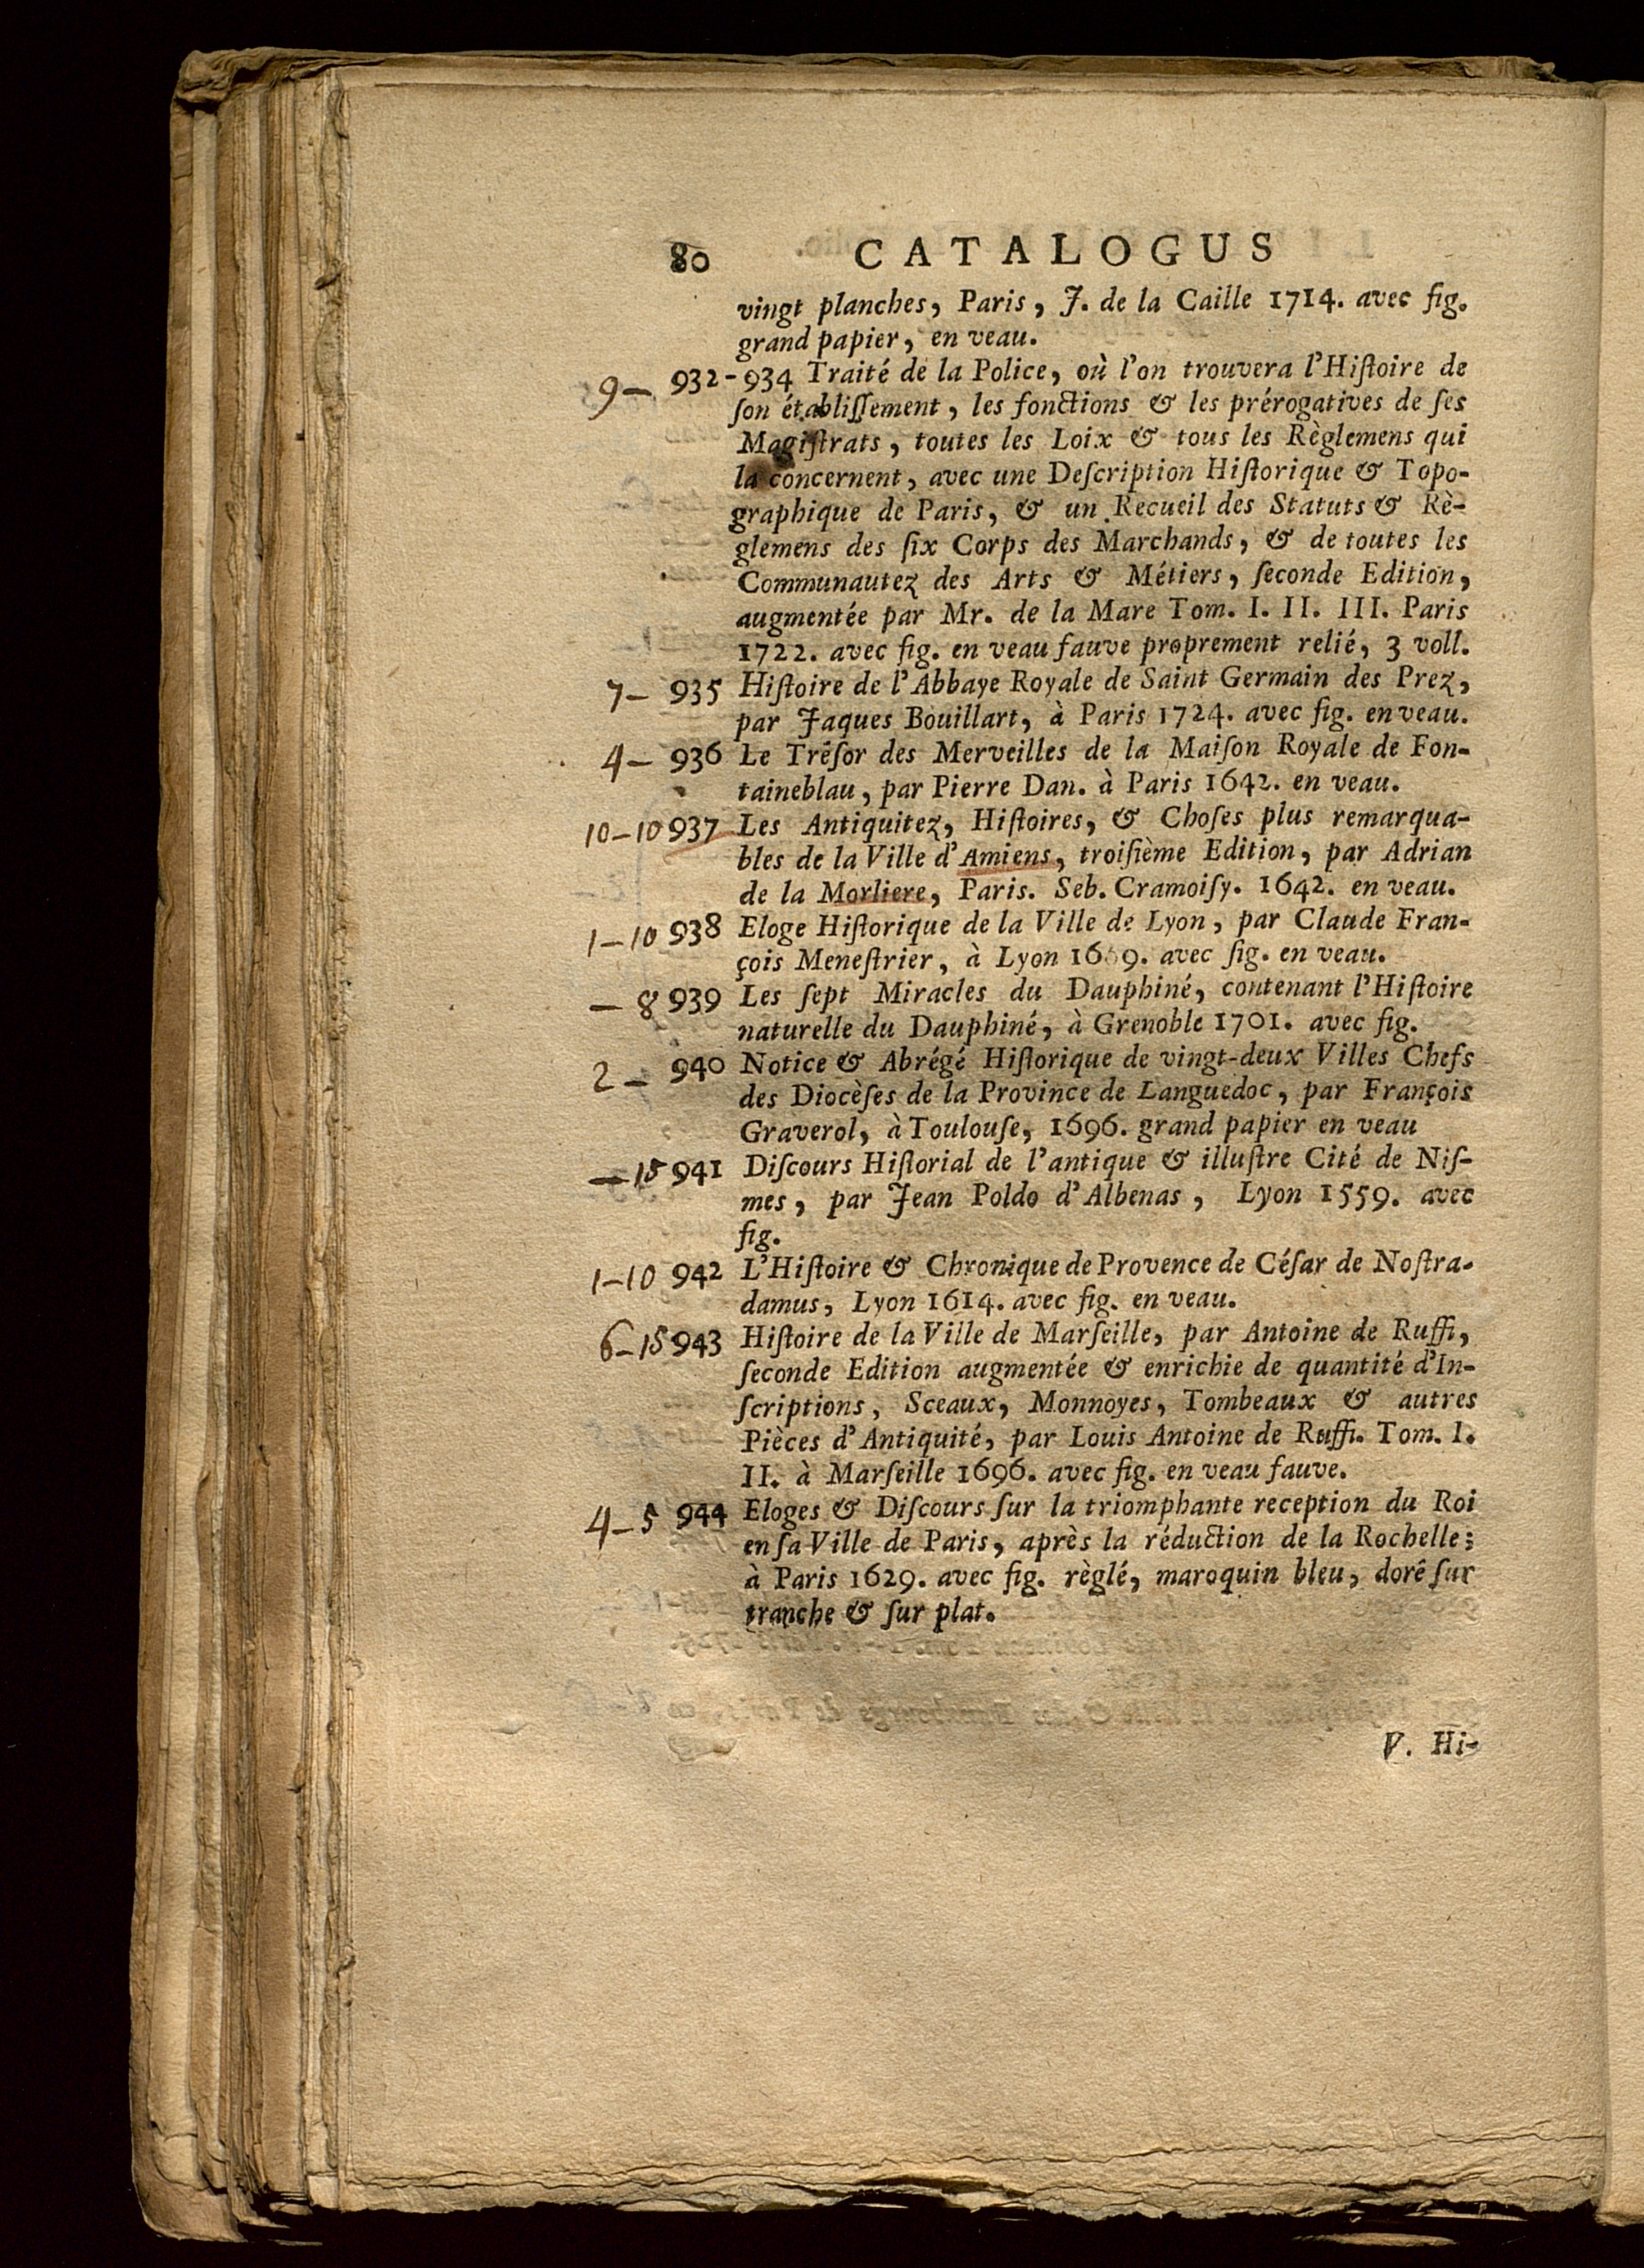 80 CATALOGUS
vingt planches, Paris, J. de la Caille 1714. avec fig.
grand papier, en veau.
9 — 932-934 Traité de la Police, où l'on trouvera l'Hiſtoire de
ſon établiſſement, les fonctions & les prérogatives de ſes
Magiſtrats, toutes les Loix & tous les Règlemens qui
la concernent, avec une Deſcription Hiſtorique & Topo-
graphique de Paris, & un Recueil des Statuts & Rè-
glemens des ſix Corps des Marchands, & de toutes les
Communautez des Arts & Métiers, ſeconde Edition,
augmentée par Mr. de la Mare Tom. I. II. III. Paris
1722. avec fig. en veau fauve proprement relié, 3 voll.
7 — 935 Hiſtoire de l'Abbaye Royale de Saint Germain des Prez,
par Jaques Bouillart, à Paris 1724. avec fig. en veau.
4 — 936 Le Tréſor des Merveilles de la Maiſon Royale de Fon-
taineblau, par Pierre Dan. à Paris 1642. en veau.
10 — 10 937 Les Antiquitez, Hiſtoires, & Choſes plus remarqua-
bles de la Ville d'Amiens, troiſième Edition, par Adrian
de la Morliere, Paris. Seb. Cramoiſy. 1642. en veau.
1 — 10 938 Eloge Hiſtorique de la Ville de Lyon, par Claude Fran-
çois Meneſtrier, à Lyon 1669. avec fig. en veau.
— 8 939 Les ſept Miracles du Dauphiné, contenant l'Hiſtoire
naturelle du Dauphiné, à Grenoble 1701. avec fig.
2 — 940 Notice & Abrégé Hiſtorique de vingt-deux Villes Chefs
des Diocèſes de la Province de Languedoc, par François
Graverol, à Toulouſe, 1696. grand papier en veau
— 15 941 Diſcours Hiſtorial de l'antique & illuſtre Cité de Niſ-
mes, par Jean Poldo d'Albenas, Lyon 1559. avec
fig.
1 — 10 942 L'Hiſtoire & Chronique de Provence de Céſar de Noſtra-
damus, Lyon 1614. avec fig. en veau.
6 — 15 943 Hiſtoire de la Ville de Marſeille, par Antoine de Ruffi,
ſeconde Edition augmentée & enrichie de quantité d'In-
ſcriptions, Sceaux, Monnoyes, Tombeaux & autres
Pièces d'Antiquité, par Louis Antoine de Ruffi. Tom. I.
II. à Marſeille 1696. avec fig. en veau fauve.
4 — 5 944 Eloges & Diſcours ſur la triomphante reception du Roi
en ſa Ville de Paris, après la réduction de la Rochelle;
à Paris 1629. avec fig. règlé, maroquin bleu, doré ſur
tranche & ſur plat.
V. Hi-